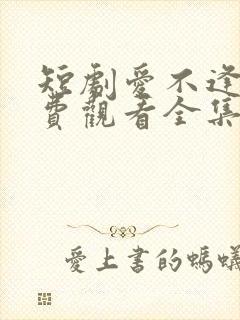 短劇愛不逢
費觀看全集
愛上書的螞蟻